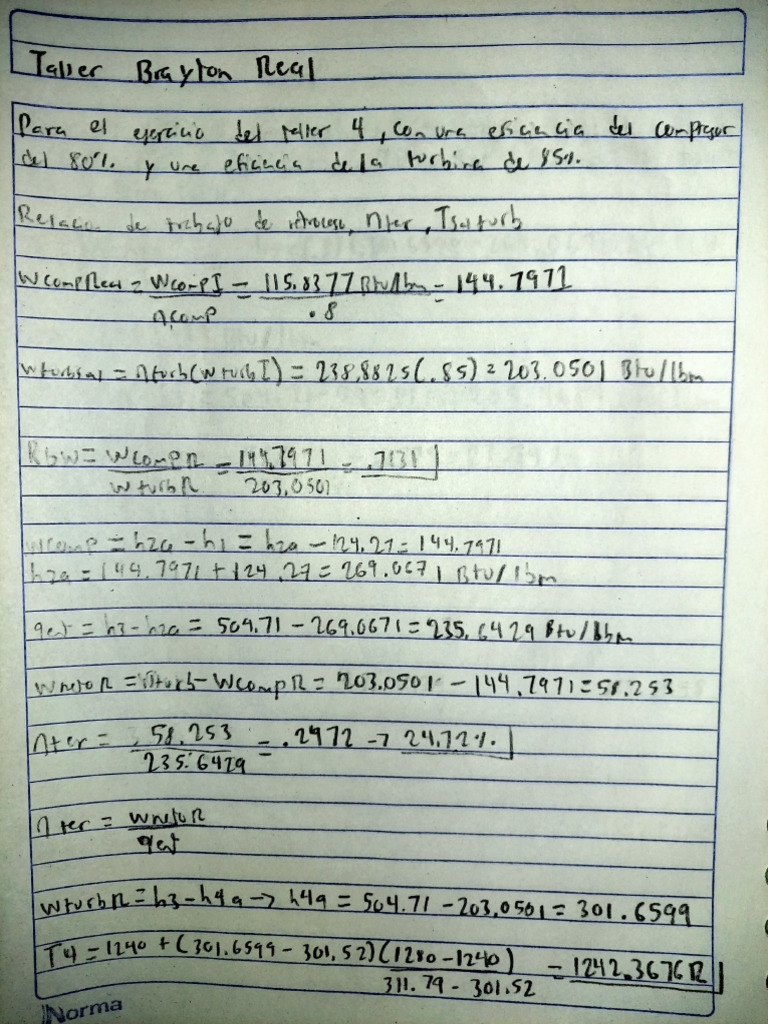 Taller Brayton Real
Para el ejercicio del taller 4, con una eficiencia del compresor
del 80% y una eficiencia de la turbina de 85%.
Relacion de trabajo de retroceso, ηter, Tsalturb
WcompReal = WcompI / ηcomp = 115.8377 Btu/lbm / .8 = 144.7971
wturbreal = ηturb(wturbI) = 238.8825(.85) = 203.0501 Btu/lbm
Rbw = WcompR / WturbR = 144.7971 / 203.0501 = .7131
wcomp = h2a - h1 = h2a - 124.27 = 144.7971
h2a = 144.7971 + 124.27 = 269.0671 Btu/lbm
qent = h3 - h2a = 504.71 - 269.0671 = 235.6429 Btu/lbm
WnetoR = Wturb - WcompR = 203.0501 - 144.7971 = 58.253
ηter = 58.253 / 235.6429 = .2472 → 24.72%
ηter = WnetoR / qent
WturbR = h3 - h4a → h4a = 504.71 - 203.0501 = 301.6599
T4 = 1240 + (301.6599 - 301.52)(1280 - 1240) / 311.79 - 301.52 = 1242.3676R
Norma